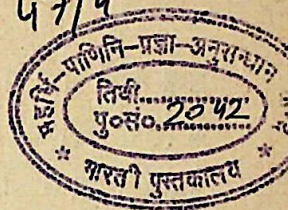 महर्षि-पाणिनि-प्रज्ञा-अनुसन्धान
तिथी..............
पु०सं०...2042
* भारती पुस्तकालय *